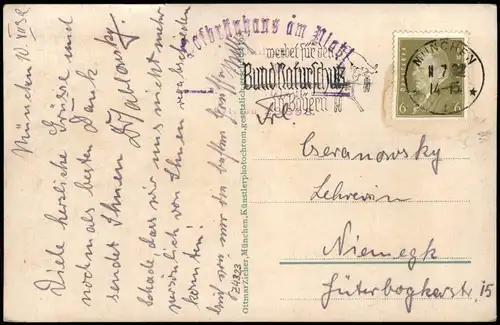 München 10. VII 32.
Viele herzliche Grüsse und
nochmals besten Dank
sendet Ihnen
Schade dass wir uns nicht mehr
persönlich von Ihnen verabschieden
konnten!
Auch von mir die besten Grüsse
Z4323
Hofbräuhaus am Platzl
werbet für den
Bund Naturschutz
in Bayern
MÜNCHEN
14-15
DEUTSCHES REICH
6 6
Ottmar Zieher, München, Künstlerphotochrom, gesetzlich
Frl.
Czeranowsky
Lehrerin
Niemegk
Jüterbogkerstr. 15